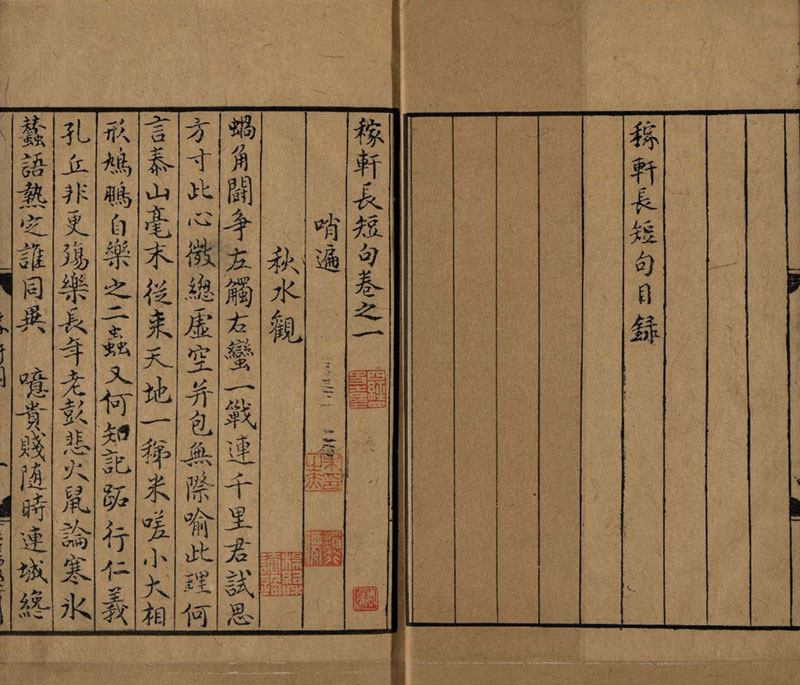 稼軒長短句目録
稼軒長短句卷之一
哨遍
秋水觀
蝸角鬪爭左觸右蠻一戰連千里君試思
方寸此心微總虛空并包無際喻此理何
言泰山毫末從来天地一稊米嗟小大相
形鳩鵬自樂之二蟲又何知記跖行仁義
孔丘非更殤樂長年老彭悲火鼠論寒氷
蠶語熱定誰同異 噫貴賤随時連城纔